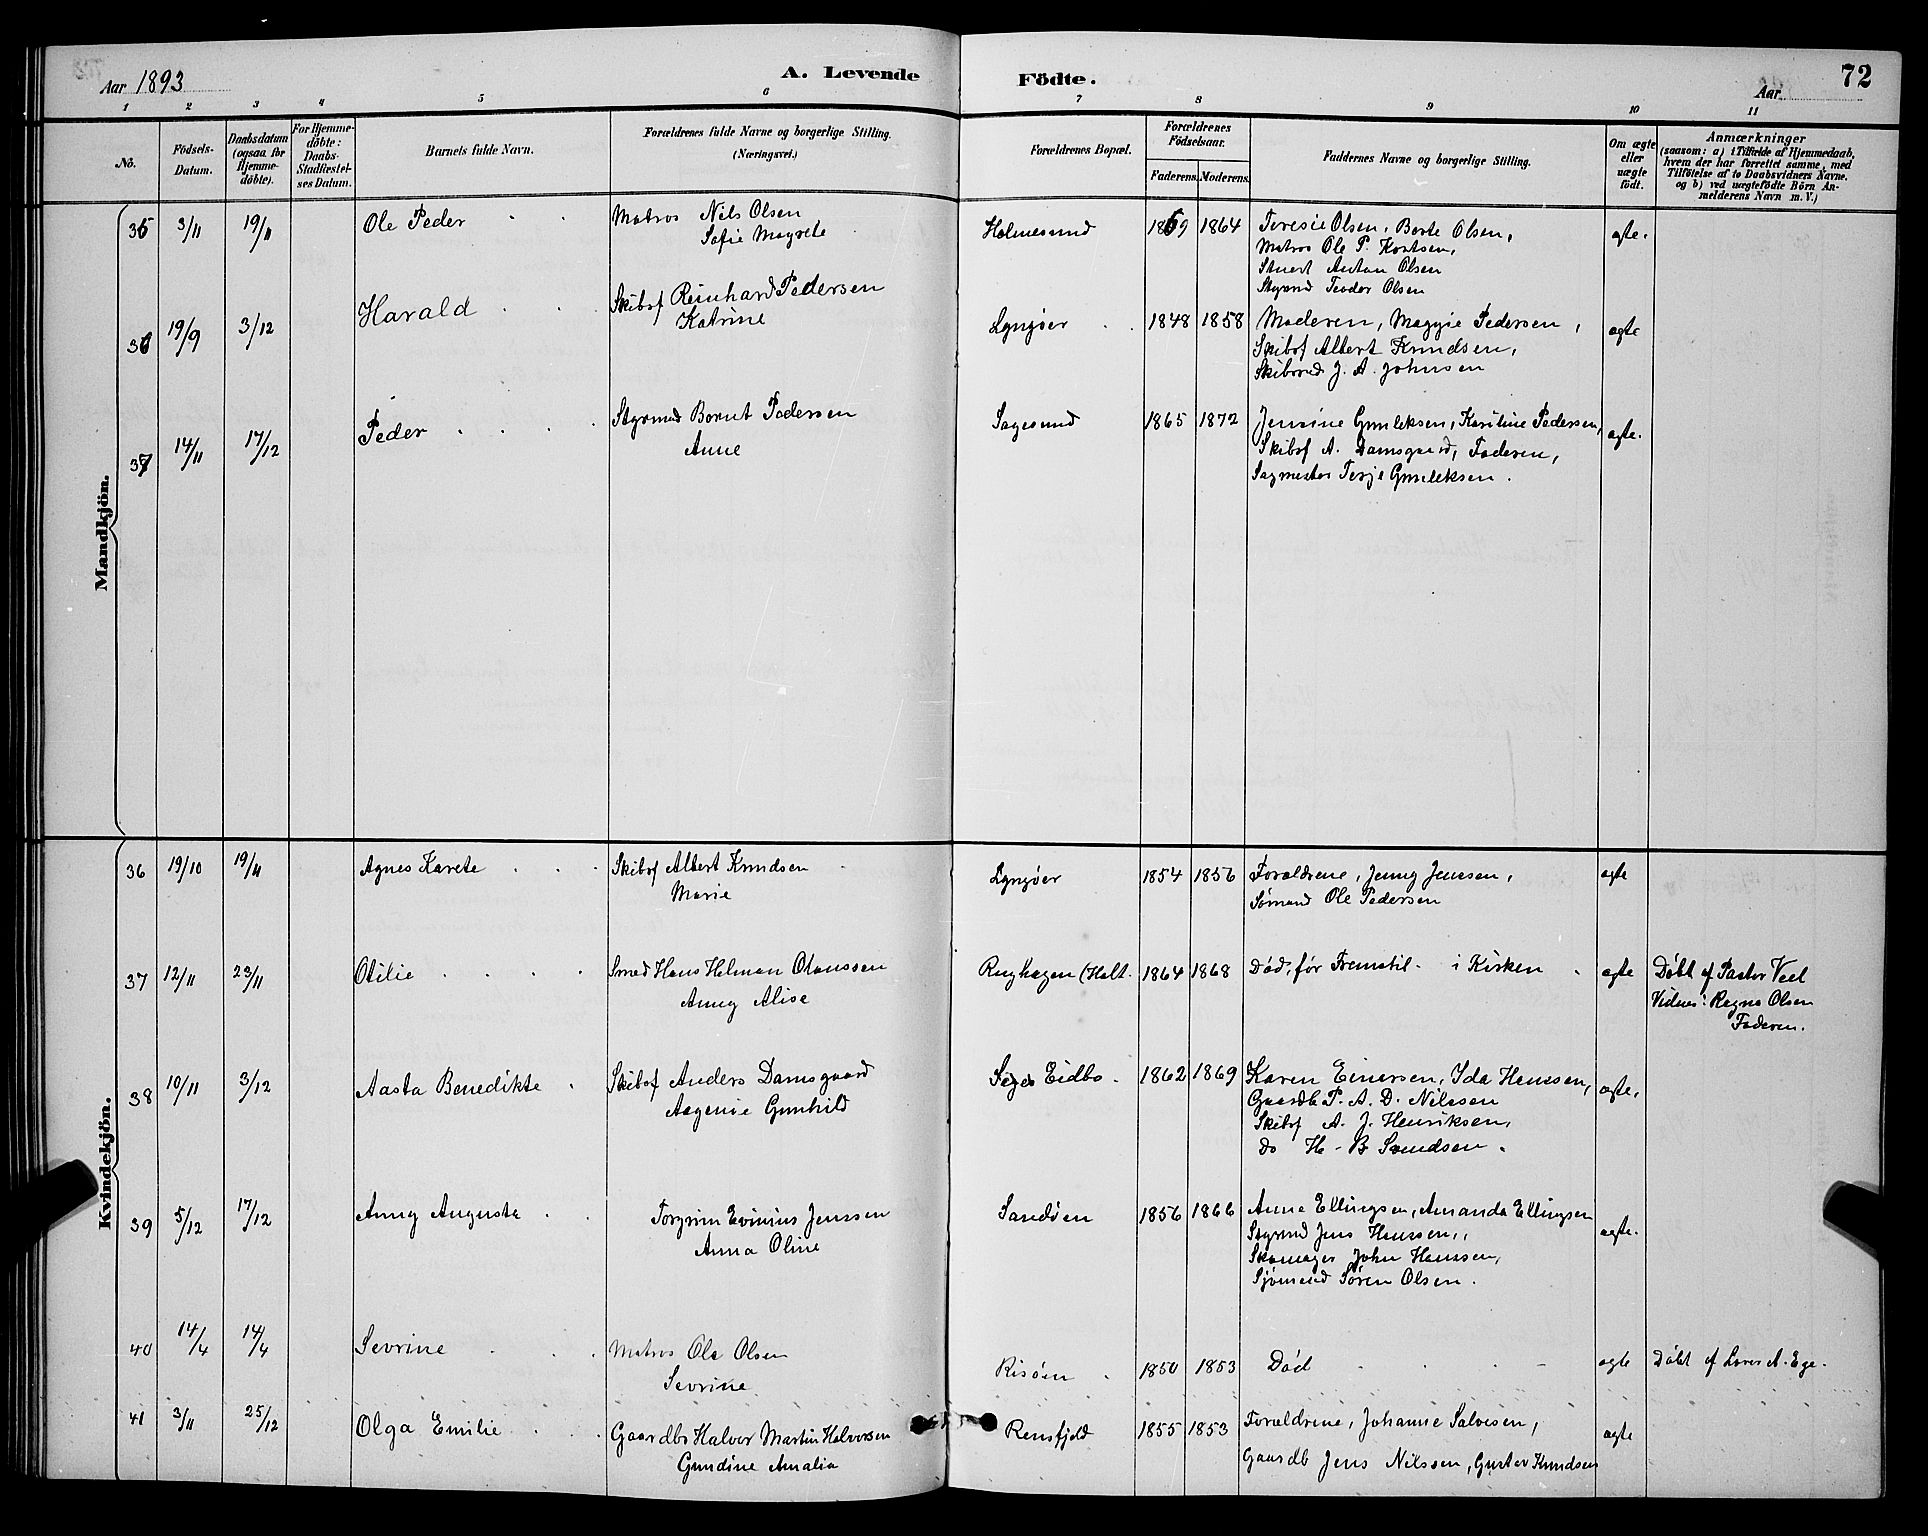 Aar 1893
A. Levende
Födte.
Aar
72
1 2 3 4 5 6 7 8 9 10 11
No.
Födsels-
Datum.
Daabsdatum
(ogsaa for
Hjemme-
döbte).
For Hjemme-
döbte:
Daabs-
Stadfæstel-
ses Datum.
Barnets fulde Navn.
Forældrenes fulde Navne og borgerlige Stilling.
(Næringsvei.)
Forældrenes Bopæl.
Forældrenes
Födselsaar.
Faderens. Moderens.
Faddernes Navne og borgerlige Stilling.
Om ægte
eller
uægte
født.
Anmærkninger
(saasom: a) i Tilfælde af Hjemmedaab,
hvem der har forrettet samme, med
Tilföielse af to Daabsvidners Navne.
og b) ved uægtefødte Börn An-
melderens Navn m. V.)
Mandkjön.
35 3/11 19/11 Ole Peder Matros Nils Olsen
Sofie Magrete
Holmesund 1869 1864 Teresie Olsen, Berte Olsen,
Matros Ole P. Knutsen,
Stuert Anton Olsen
Styrmd Teodor Olsen
ægte.
36 19/9 3/12 Harald Skibsf Reinhard Pedersen
Katrine
Lyngøer 1848 1858 Moderen, Maggie Pedersen,
Skibsf Albert Knudsen,
Skibsred J. A. Johnsen
ægte
37 14/11 17/12 Peder Styrmd Bernt Pedersen
Anne
Sagesund 1865 1872 Jensine Gunleksen, Karoline Pedersen,
Skibsf A. Damsgaard, Faderen,
Sagmester Terje Gunleksen.
ægte.
Kvindekjön.
36 19/10 19/11 Agnes Karete Skibsf Albert Knudsen
Marie
Lyngøer 1854 1856 Forældrene, Jenny Jenssen,
Sømand Ole Pedersen
ægte
37 12/11 23/11 Otilie Smed Hans Helman Olaussen
Anny Alise
Rughagen (Holt. 1864 1868 Død, før Fremstil. i Kirken ægte Døbt af Pastor Veel
Vidner: Ragna Olsen
Faderen.
38 10/11 3/12 Aasta Benedikte Skibsf Anders Damsgaard
Aagenie Gunhild
Eidbo 1862 1869 Karen Einersen, Ida Hanssen,
Gaardb P. A. D. Nilssen
Skibsf A. J. Henriksen,
Do H. B. Svendsen.
ægte,
39 5/12 17/12 Anny Auguste Torgrim Evinius Jenssen
Anna Oline
Sandøen 1856 1866 Anne Ellingsen, Amanda Ellingsen
Styrmd Jens Hanssen,
Skomager John Hanssen,
Sjömand Sören Olsen.
ægte.
40 14/4 14/4 Sevrine Matros Ole Olsen
Sevrine
Risøen 1850 1853 Død ægte Døbt af Lærer A. Ege.
41 3/11 25/12 Olga Emilie Gaardbr Halvor Martin Halvorsen
Gundine Amalia
Rensfjeld 1855 1853 Forældrene, Johanne Salvesen,
Gaardb Jens Nilssen, Gustav Knudsen
ægte